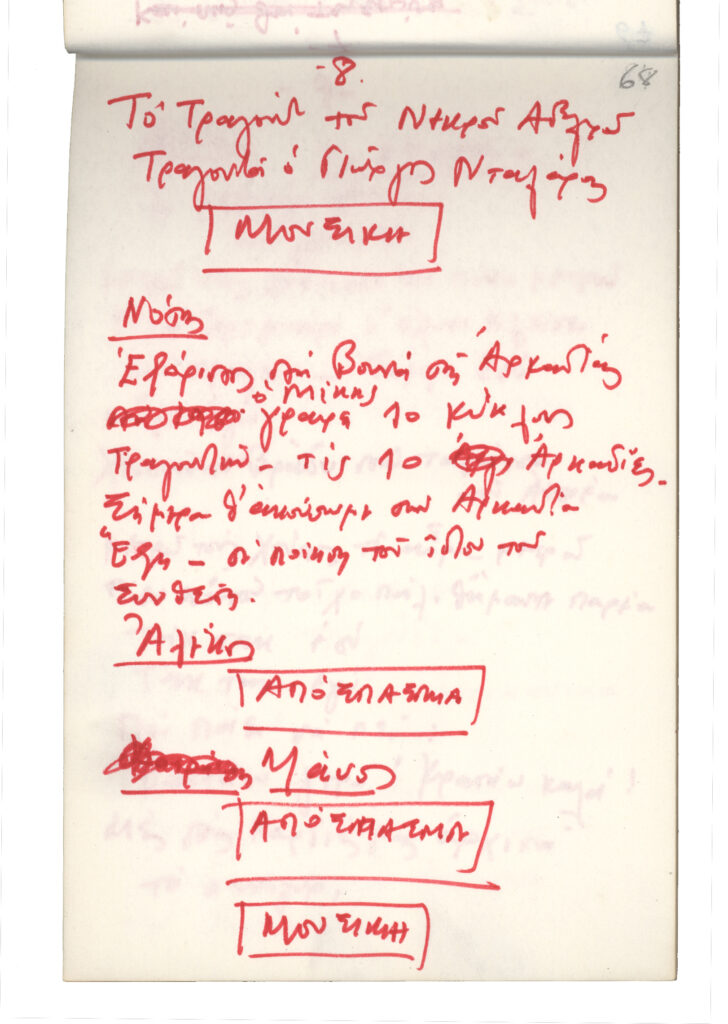 -8.
68
Τό Τραγούδι τοῦ Νεκροῦ Αδελφοῦ
Τραγουδά ὁ Γιώργος Νταλάρας
ΜΟΥΣΙΚΗ
Νότης
Ἐξόριστος στά Βουνά τῆς Ἀρκαδίας
ὁ Μίκης
γραφει 10 κύκλους
Τραγουδιῶν - τίς 10 Ἀρκαδίες.
Σήμερα θ' ἀκούσωμε στήν Αρκαδία
Ἕξη - σέ ποίηση τοῦ ἴδιου τοῦ
Συνθέτη.
Ἀλέκος
ΑΠΌΣΠΑΣΜΑ
Μάνος
ΑΠΌΣΠΑΣΜΑ
ΜΟΥΣΙΚΗ